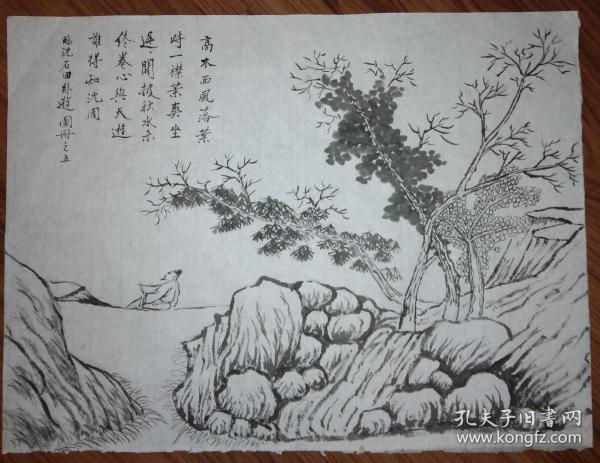 高木西風落葉
時一襟蕭爽坐
遲〻閒披秋水未
終卷心與天遊
誰得知沈周
臨沈石田卧遊圖冊之五
孔夫子旧書网
www.kongfz.com